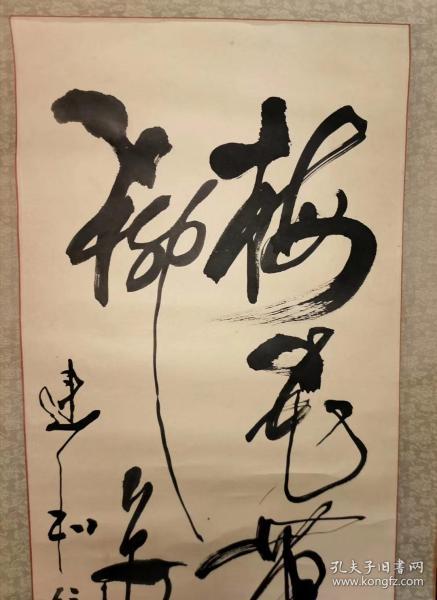 梅花带
柳色
建和
孔夫子旧书网
www.kongfz.com